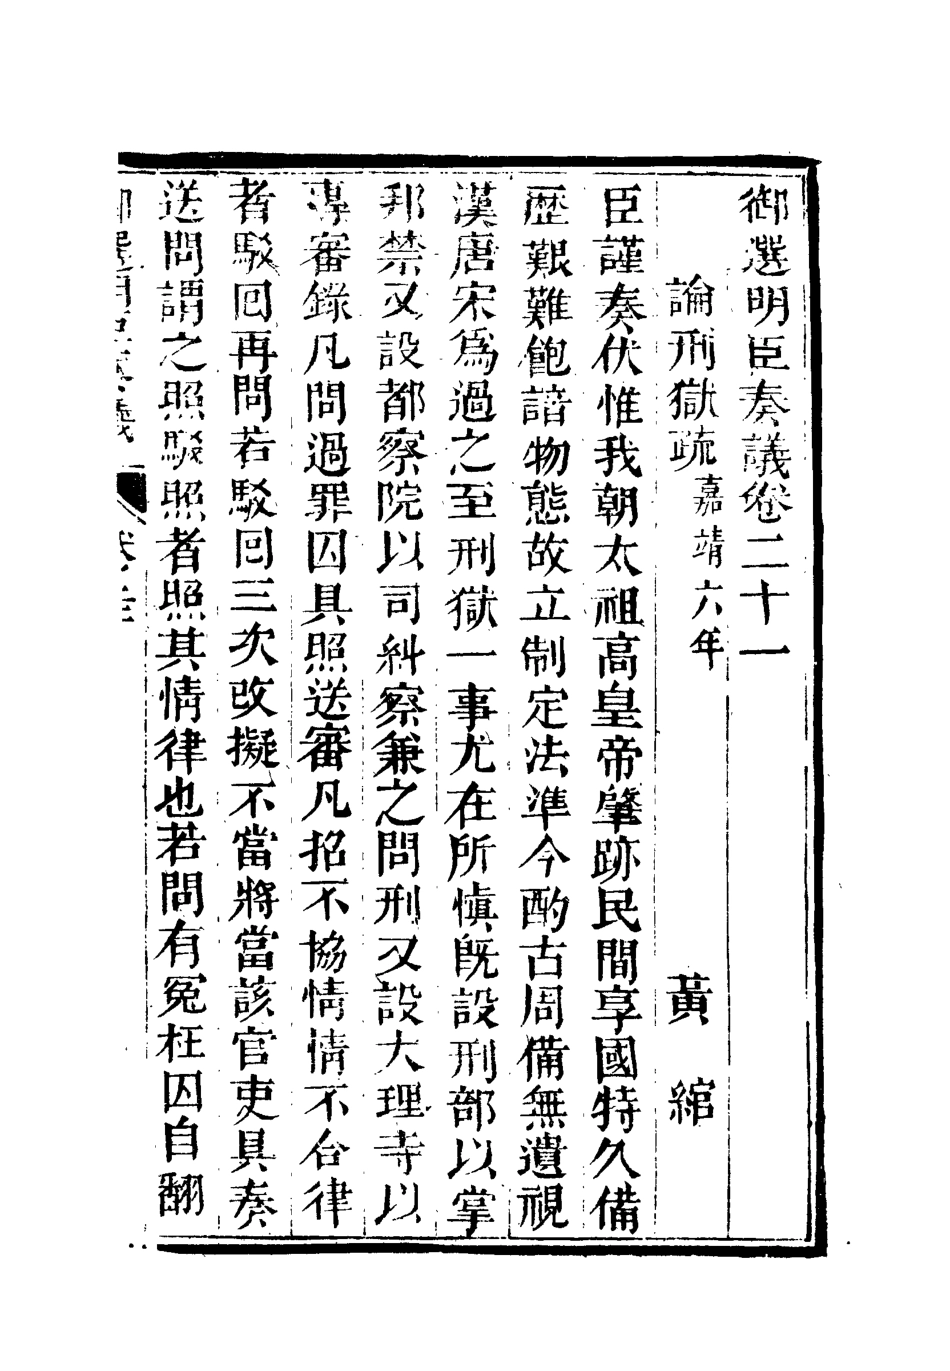 御選明臣奏議卷二十一
論刑獄疏嘉靖六年 黃綰
臣謹奏伏惟我朝太祖高皇帝肇跡民間享國特久備
歷艱難飽諳物態故立制定法準今酌古周備無遺視
漢唐宋爲過之至刑獄一事尤在所慎既設刑部以掌
邦禁又設都察院以司糾察兼之問刑又設大理寺以
專審錄凡問過罪囚具照送審凡招不協情情不合律
者駁回再問若駁回三次改擬不當將當該官吏具奏
送問謂之照駁照者照其情律也若問有冤枉囚自翻
御選明臣奏議 卷二十一